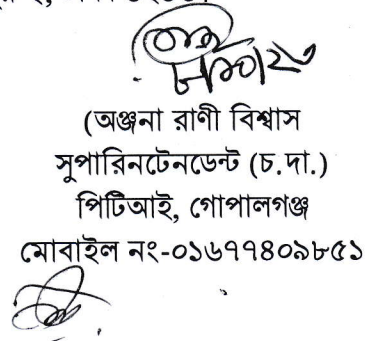 (অঞ্জনা রাণী বিশ্বাস
সুপারিনটেনডেন্ট (চ.দা.)
পিটিআই, গোপালগঞ্জ
মোবাইল নং-০১৬৭৭৪০৯৮৫১